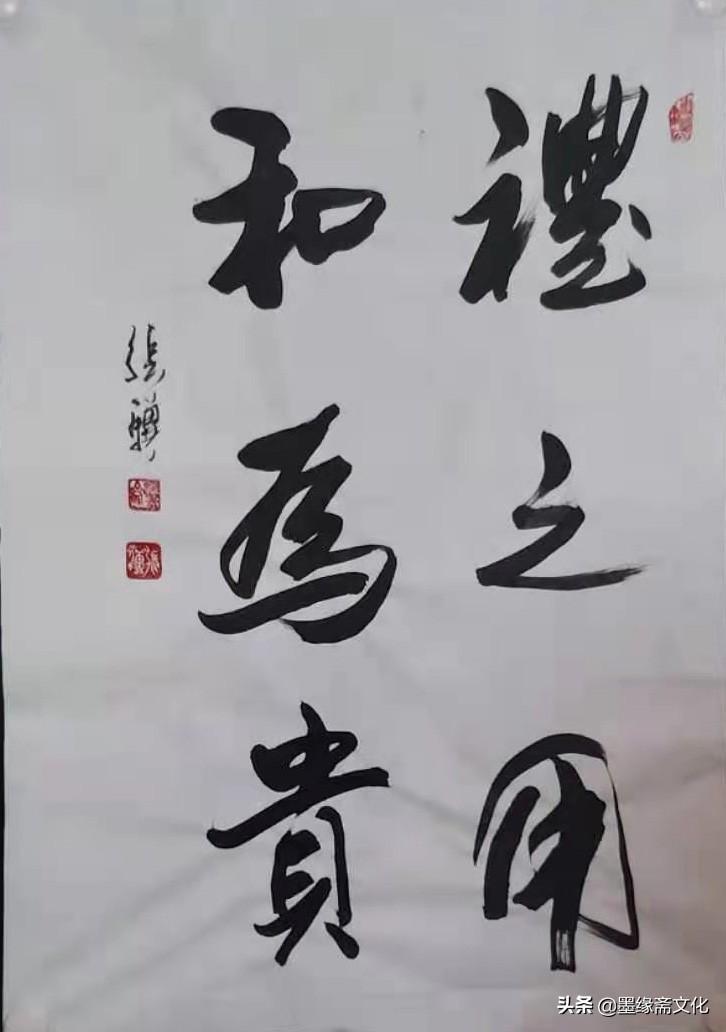 禮之用
和為貴
張
头条 @墨缘斋文化